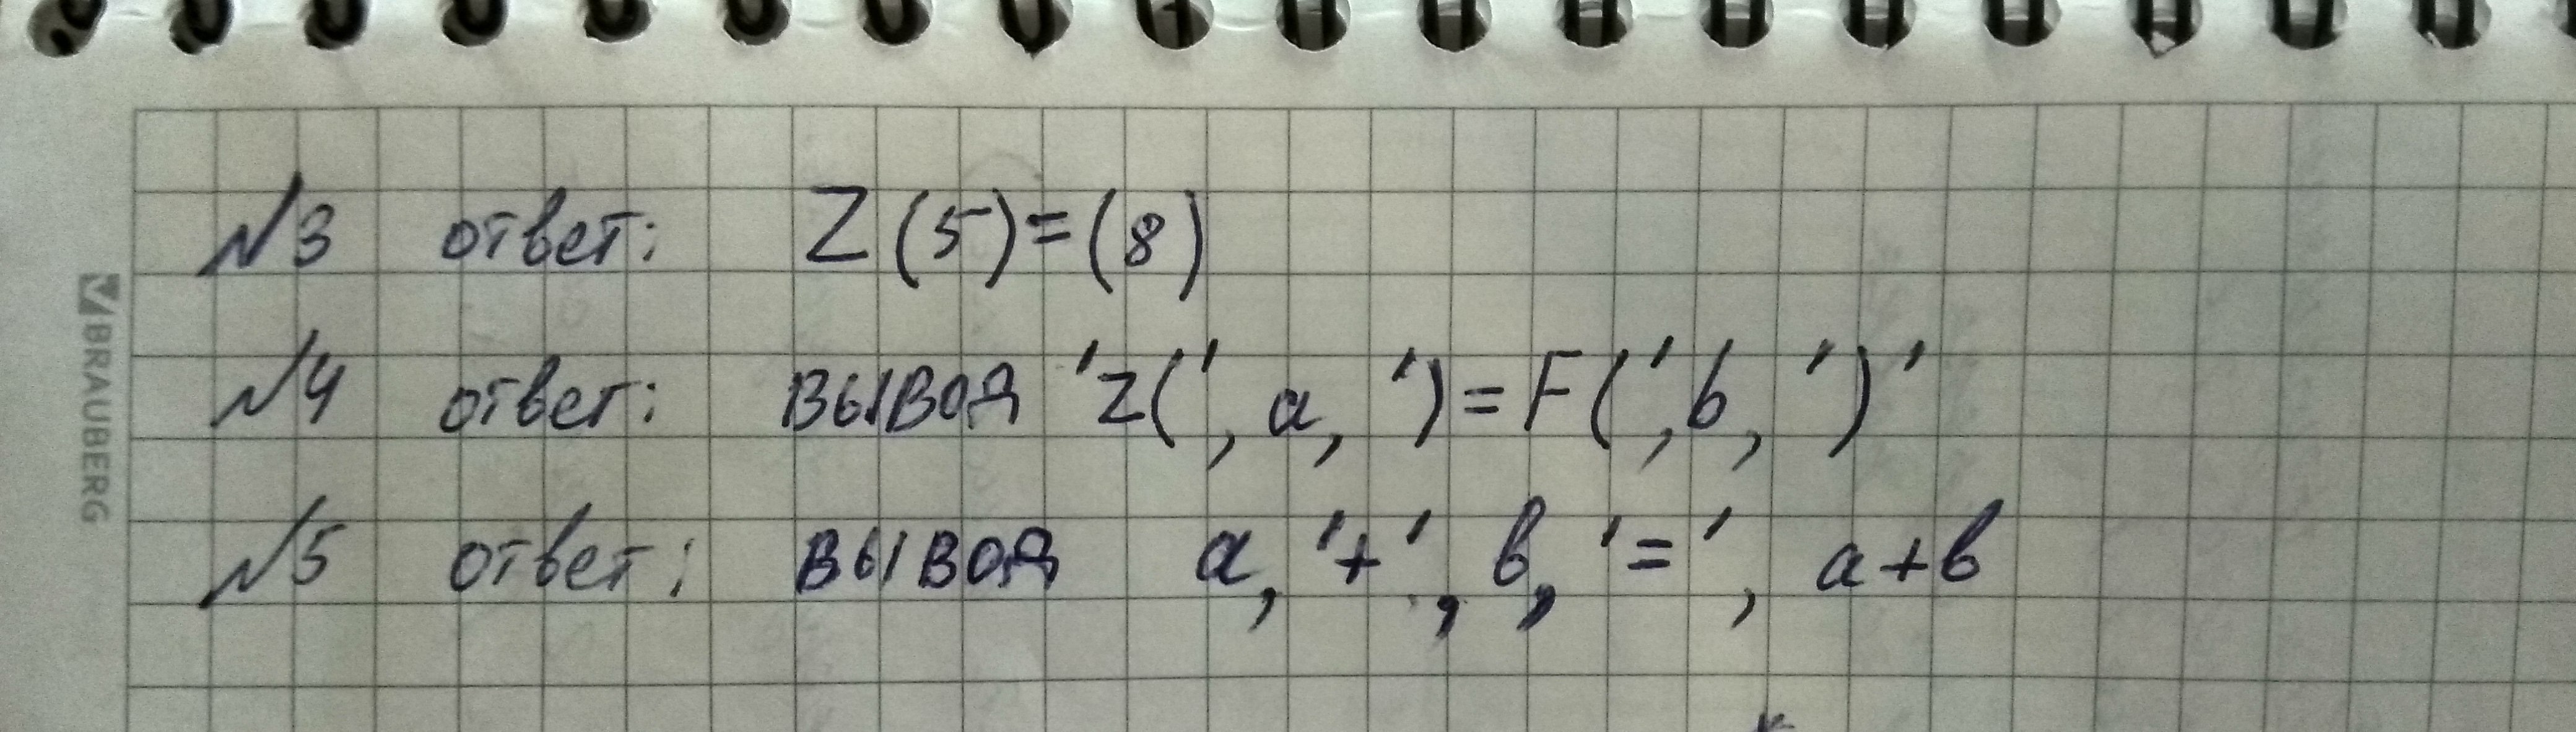 BRAUBERG
№3 ответ: Z(5)=(8)
№4 ответ: вывод 'z(', a, ')=F(', b, ')'
№5 ответ: вывод a, '+', в, '=', a+в